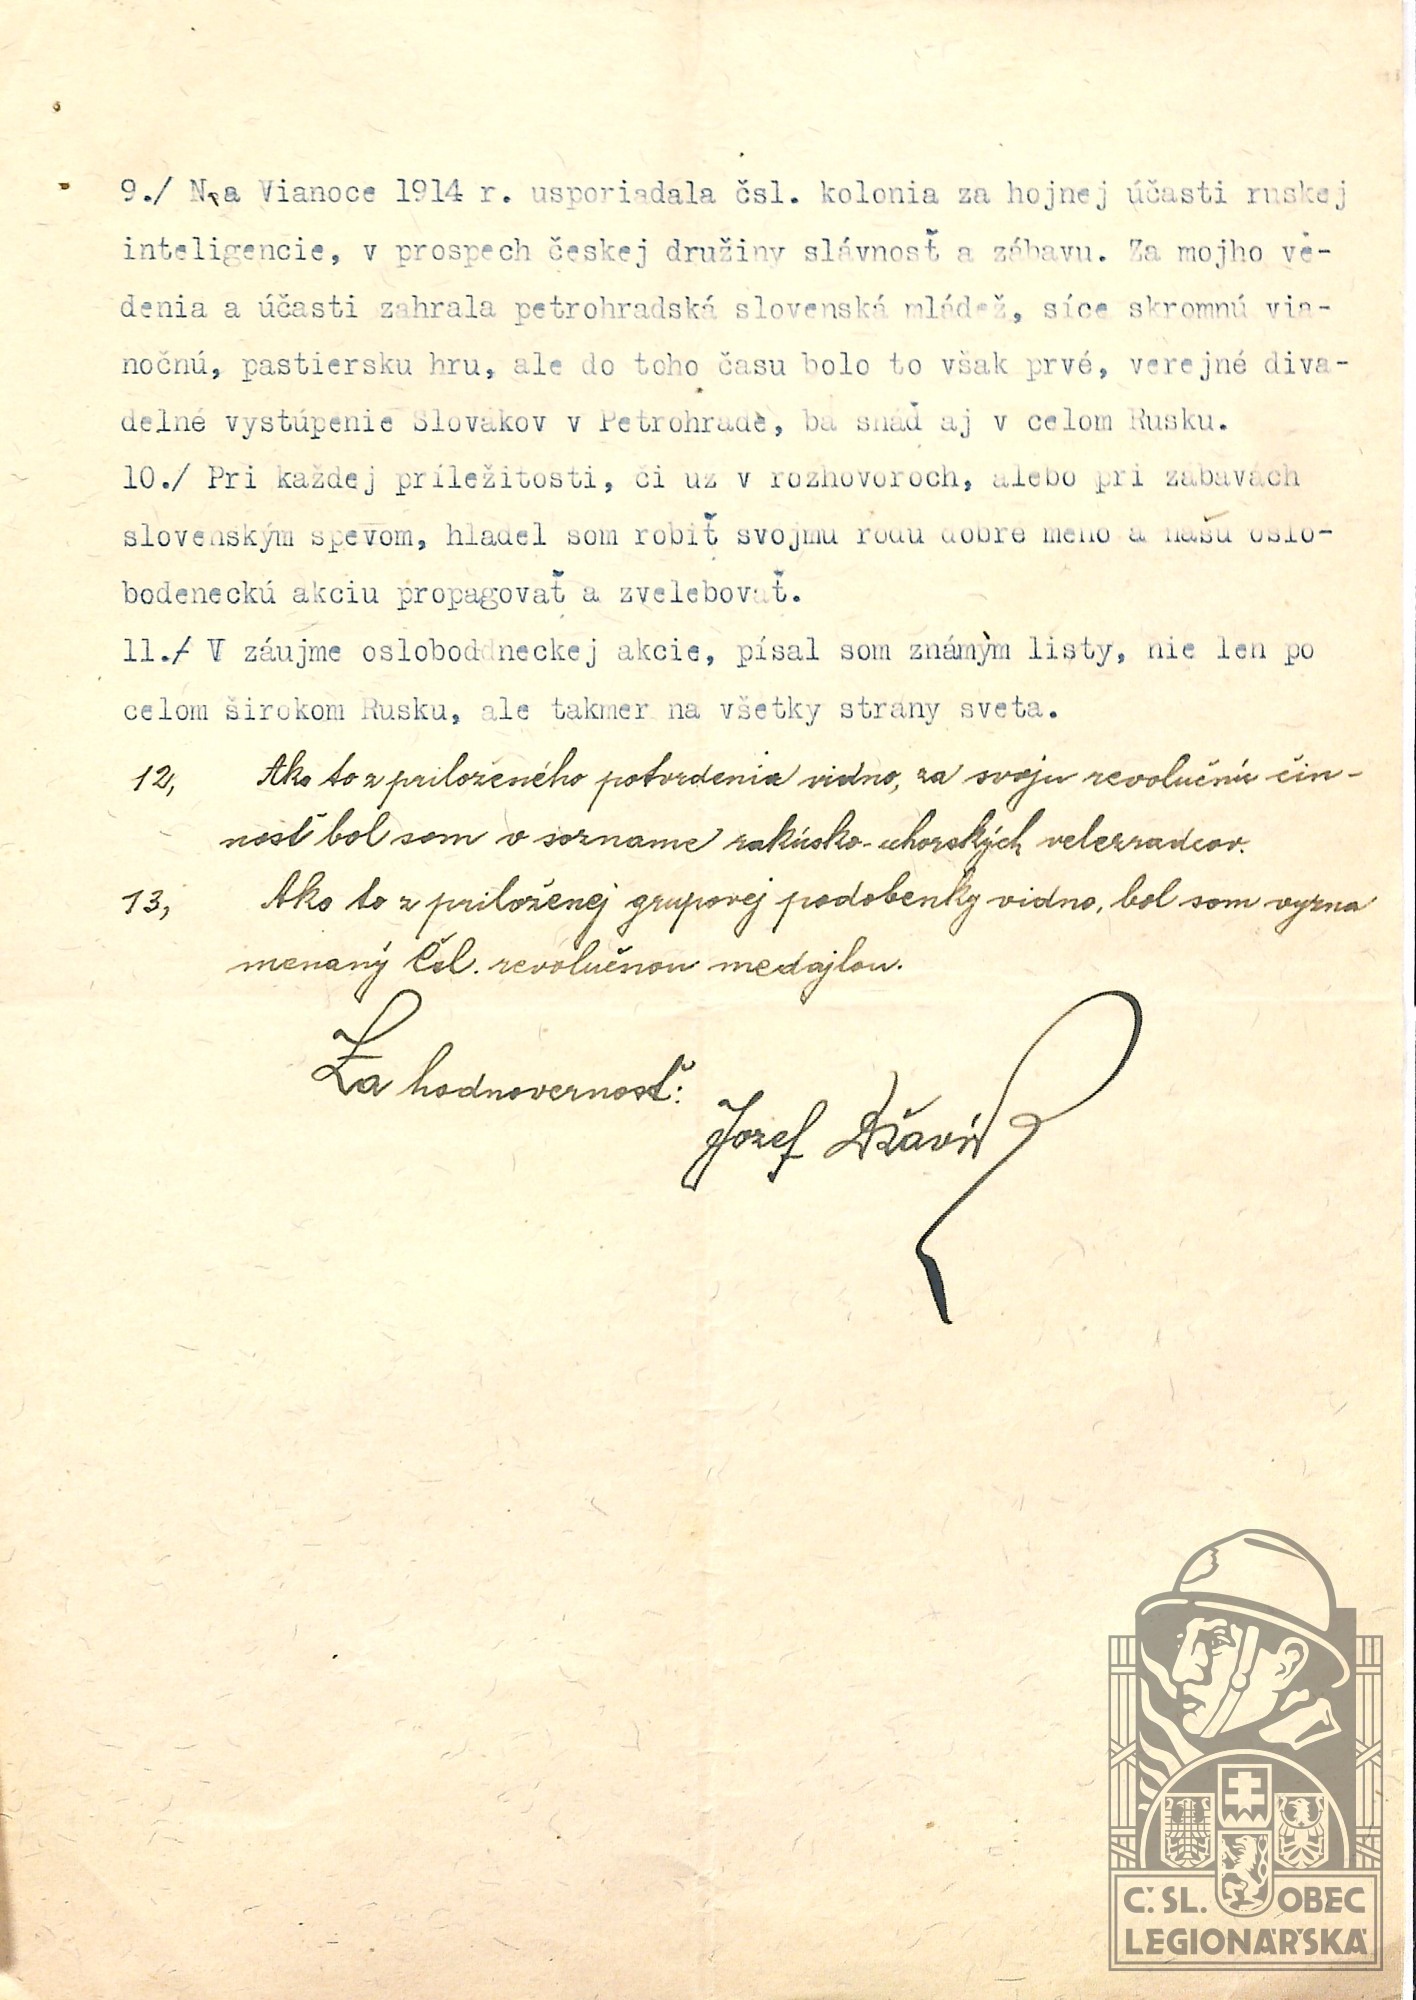 9./ Na Vianoce 1914 r. usporiadala čsl. kolonia za hojnej účasti ruskej
inteligencie, v prospech českej družiny slávnosť a zábavu. Za mojho ve-
denia a účasti zahrala petrohradská slovenská mládež, síce skromnú via-
nočnú, pastiersku hru, ale do toho času bolo to však prvé, verejné diva-
delné vystúpenie Slovákov v Petrohrade, ba snáď aj v celom Rusku.
10./ Pri každej príležitosti, či uz v rozhovoroch, alebo pri zábavách
slovenským spevom, hladel som robiť svojmu rodu dobré meno a našu oslo-
bodeneckú akciu propagovať a zvelebovať.
11./ V záujme osloboddneckej akcie, písal som známým listy, nie len po
celom širokom Rusku, ale takmer na všetky strány sveta.
12, Ako to z priloženého potvrdenia vidno, za svoju revolučnú čin-
nosť bol som v sozname rakúsko-uhorských velezradcov.
13, Ako to z priloženej grupovej podobenky vidno, bol som vyzna
menaný Čsl. revolučnou medajlou.
Za hodnovernosť:
Jozef
Č.SL. OBEC
LEGIONÁŘSKÁ